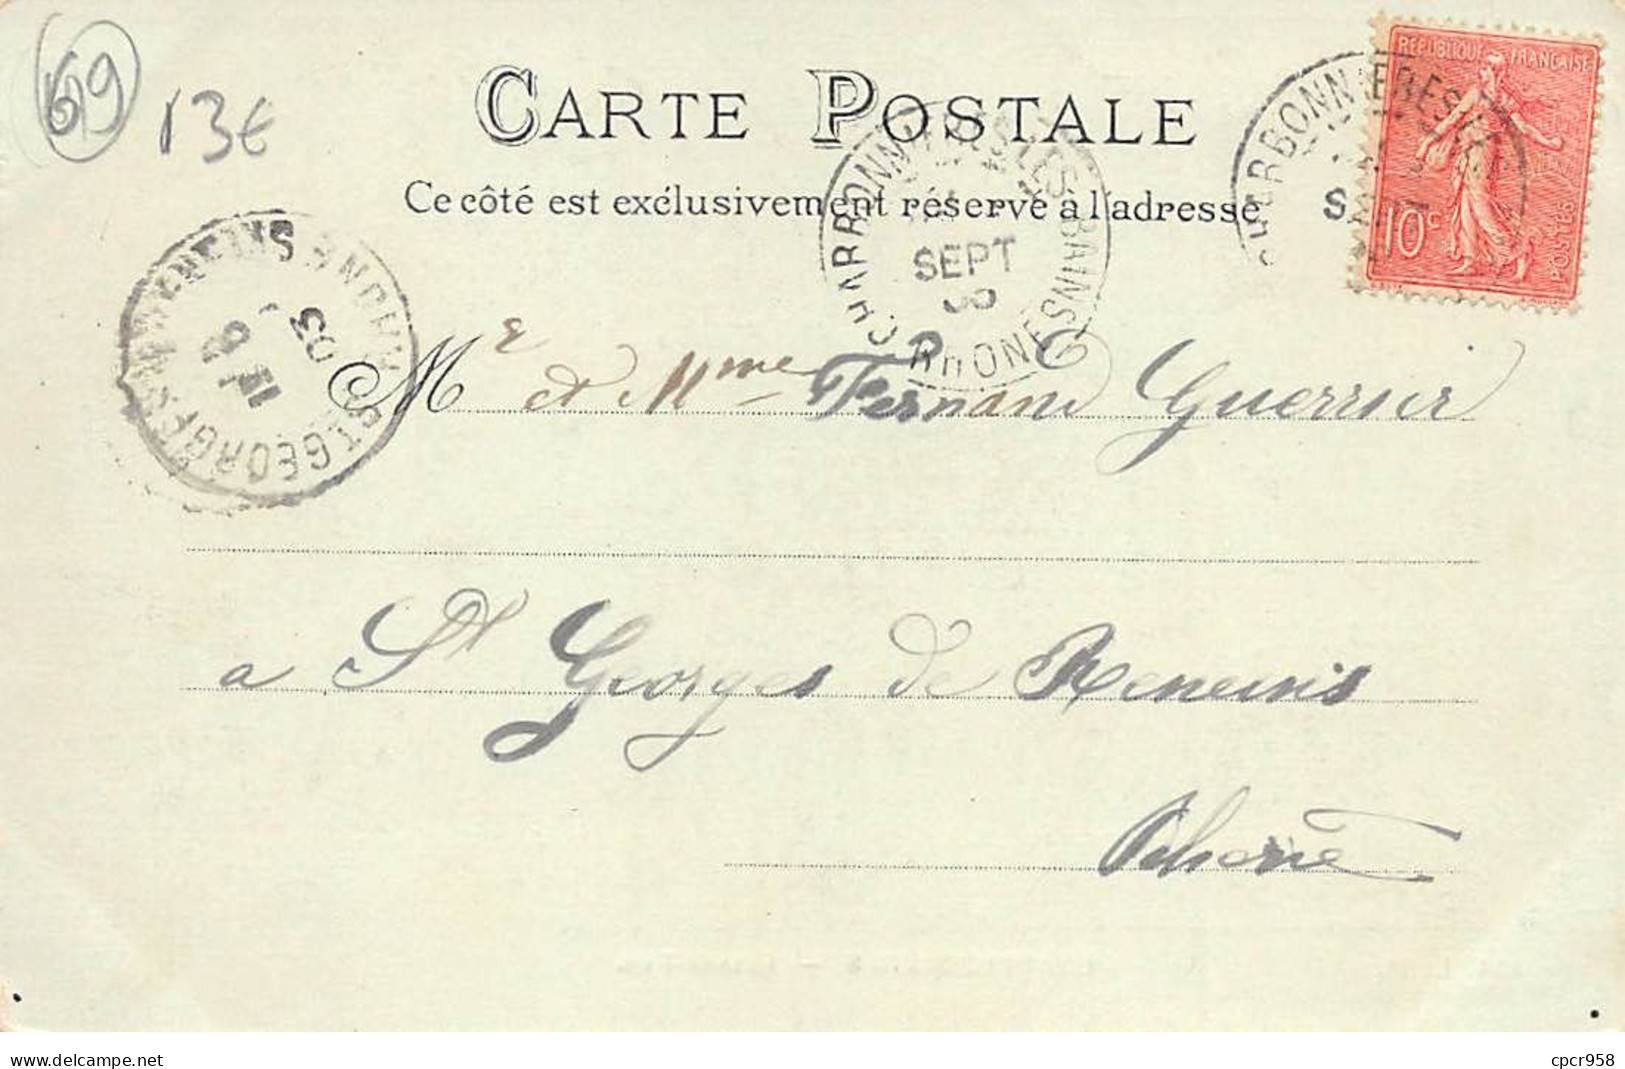 69
13€
CARTE POSTALE
Ce côté est exclusivement réservé à l'adresse
RÉPUBLIQUE FRANÇAISE
10c
POSTES
CHARBONNIERES LES BAINS
SEPT
RHONE
CHARBONNIERES LES
SEPT
ST GEORGES
RHONE
03
Me et Mme Fernand Guerrier
a St Georges de Reneins
Rhône
www.delcampe.net
cpcr958